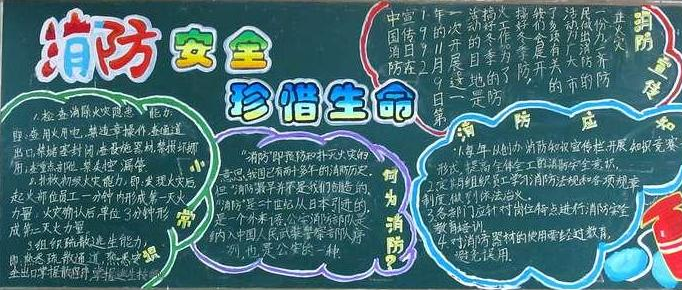 消防安全
珍惜生命
1.检查消除火灾隐患能力:
即:查用火用电,禁违章操作.查通道
出口,禁堵塞封闭.查设施器材,禁损坏挪
用.查重点部位,禁失控漏管
2.扑救初级火灾能力:即:发现火灾后
起火部位员工一分钟内形成第一灭火
力量;火灾确认后,单位三分钟形
成第二灭火力量
3.组织疏散逃生能力,
即:熟悉疏散通道,熟悉安
全出口,掌握疏散程序,掌握逃生技能
常识
"消防"即预防和扑灭火灾的
意思,我国已有两千多年的消防历史
但"消防"最早并不是我们创造的,
"消防"是二十世纪从日本引进的,
是一个外来语,公安消防部队是
纳入中国人民武装警察部队序
列,也是公安的一种.
何为消防?
消防宣传
中国消防在
1992年的11月9日第
一次开展这一
活动的目的是
搞好冬季防
火工作,为了
消防应知
1.每年以创办消防知识宣传栏.开展知识竞赛
形式,提高全体员工的消防安全意识.
2.定期组织员工学习消防法规和各项规章
制度,做到依法治火.
3.各部门应针对岗位特点进行消防安全
教育培训.
4.对消防器材的使用要经过教育,
避免误用.